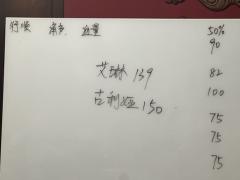 行顺 角色 血量 50%
90
艾琳 139 82
吉利娅 150 100
75
75
75